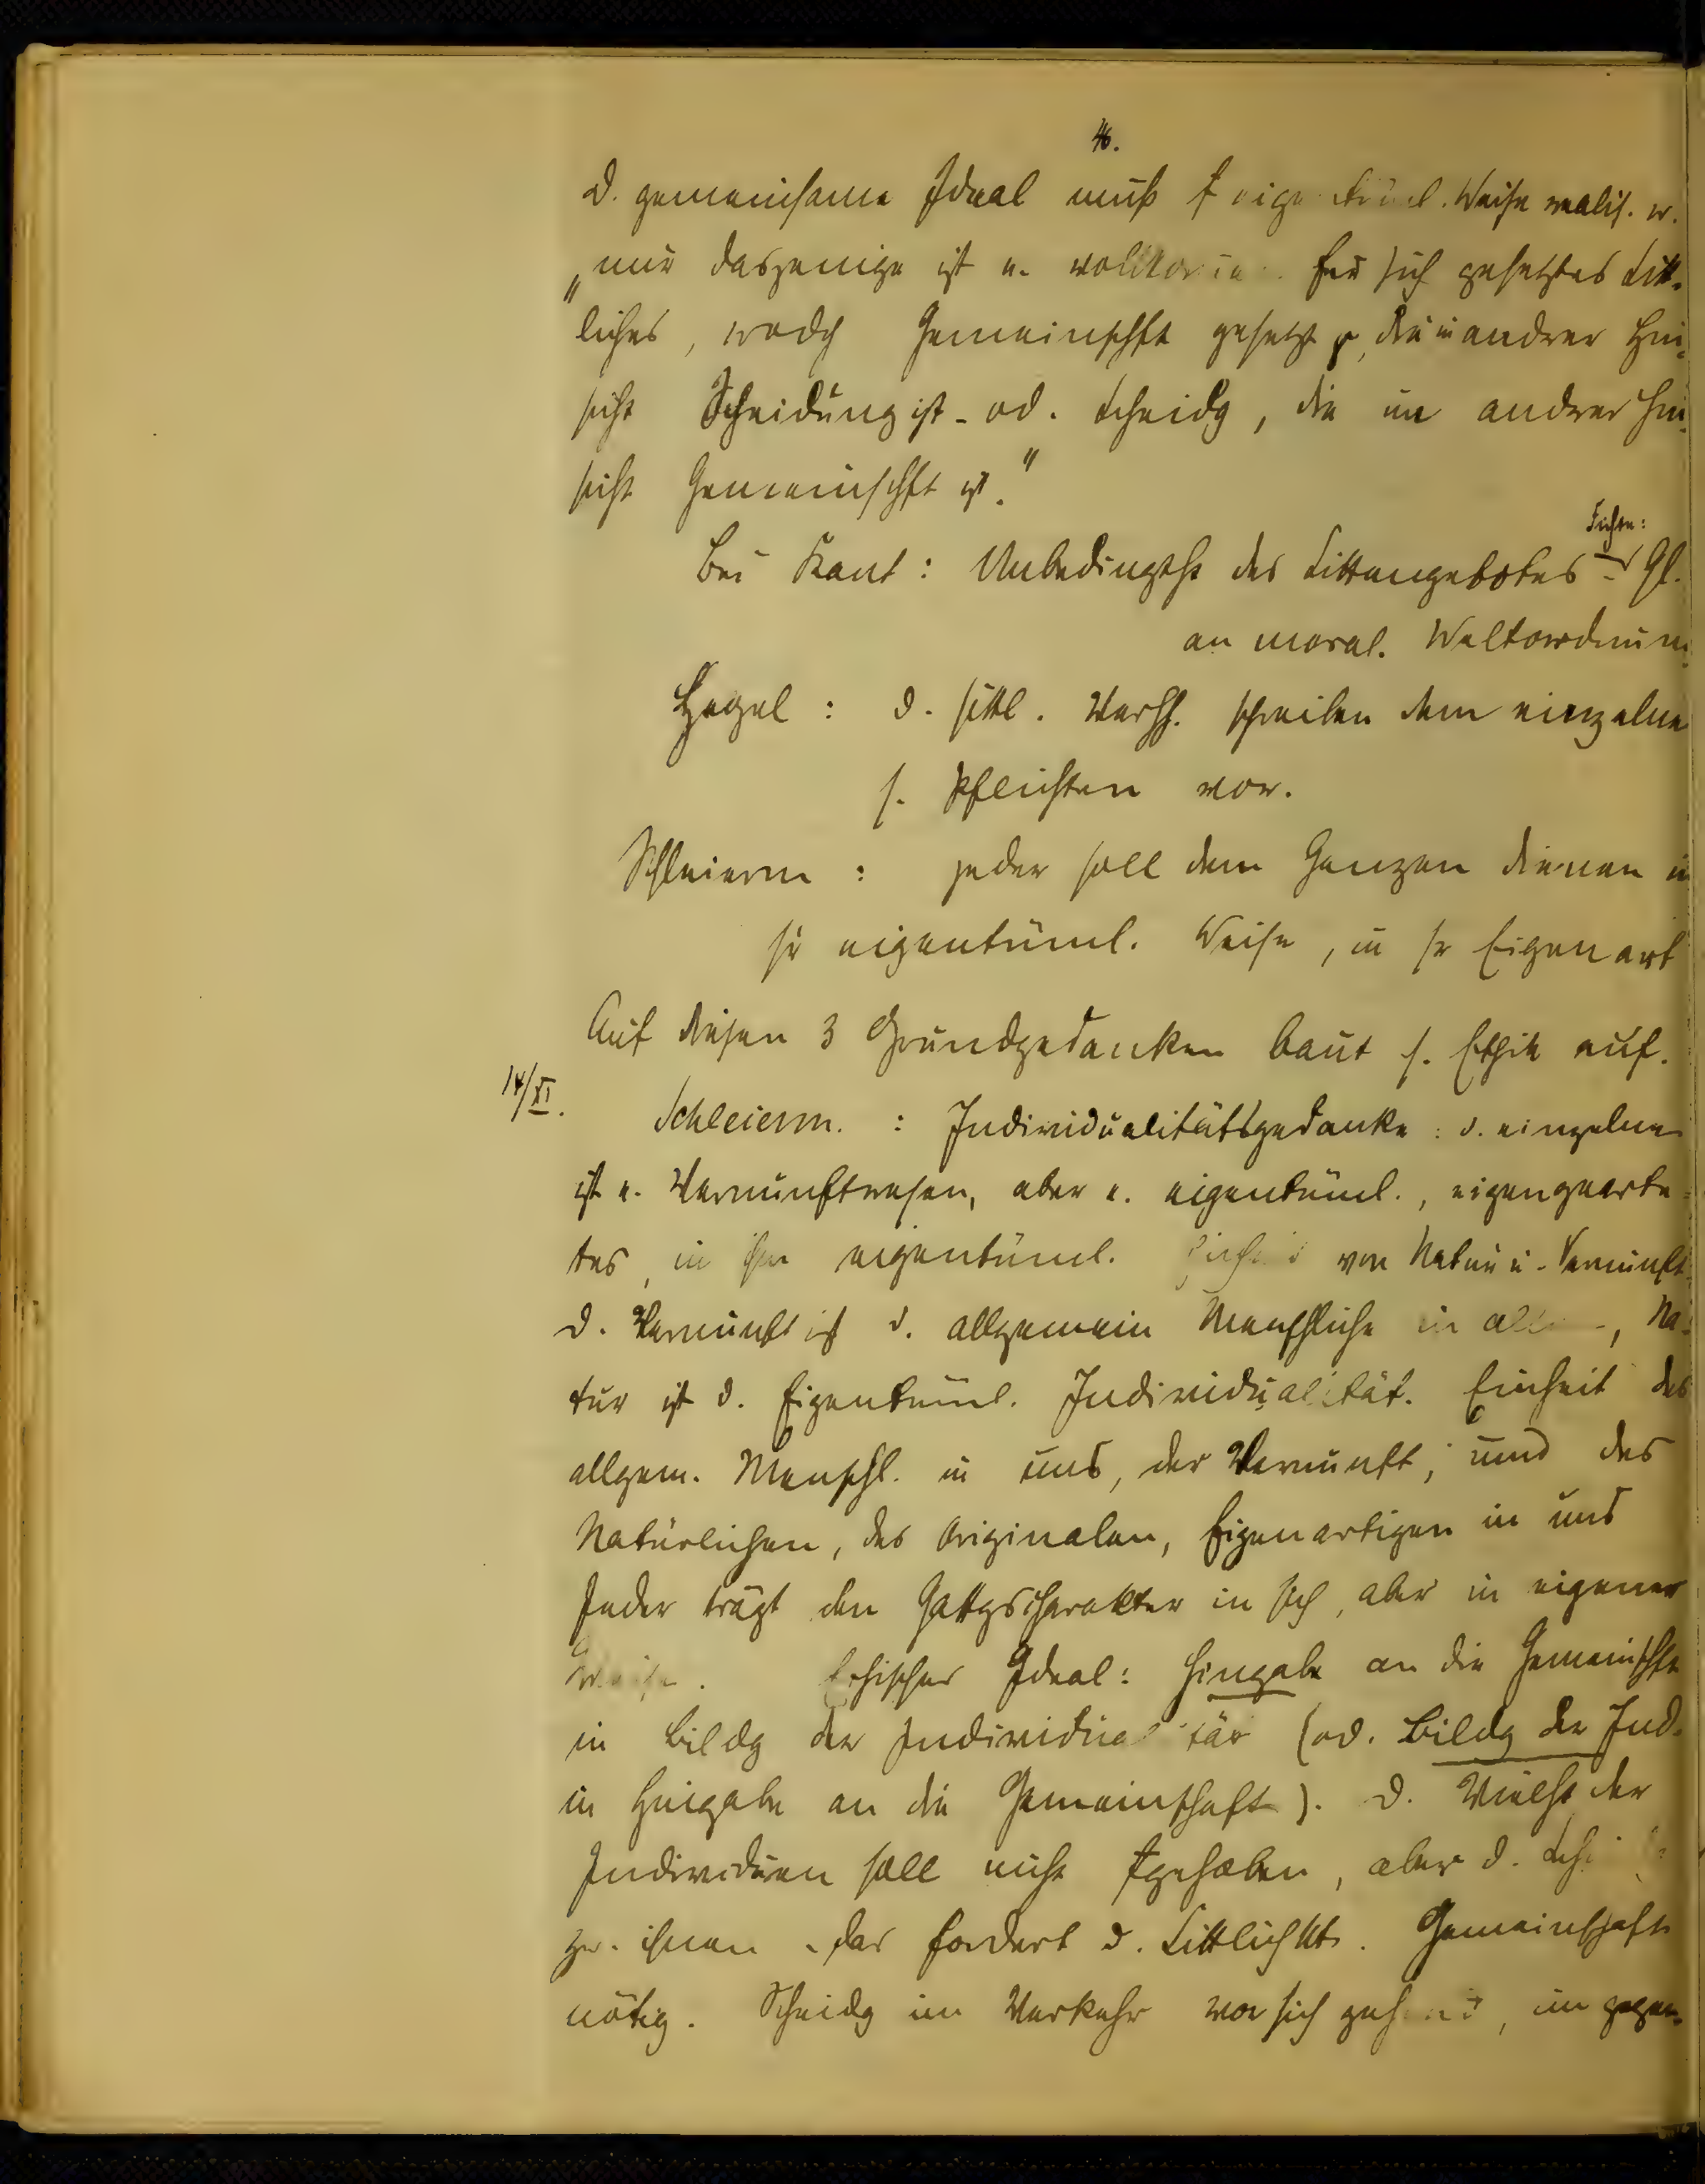 46.
D. gemeinsame Ideal muß f eigentüml. Weise realis. w.
„nur dasjenige ist e. vollkommen für sich gesetztes Sitt-
liches, wodch Gemeinschft gesetzt w, die in andrer Hin-
sicht Scheidung ist - od. Scheidg, die in andrer Hin-
sicht Gemeinschft ist."
Bei Kant: Unbedingtht des Sittengebotes - Fichte: Gl.
an moral. Weltordnun
Hegel: d. sittl. Verhh. schreiben dem einzelne
s. Pflichten vor.
Schleierm: jeder soll dem Ganzen dienen in
sr eigentüml. Weise, in sr Eigenart
Auf diesen 3 Grundgedanken baut s. Ethik auf.
14/XI.
Schleierm.: Individualitätsgedanke: d. einzelne
ist e. Vernunftwesen, aber e. eigentüml., eigengearte-
tes, in ihm eigentüml. Einheit von Natur u. Vernunft
D. Vernunft ist d. allgemein Menschliche in allen, Na-
tur ist d. Eigentüml. Individualität. Einheit des
allgem. Menschl. in uns, der Vernunft, und des
Natürlichen, des Originalen, Eigenartigen in uns
Jeder trägt den Gattgscharakter in sich, aber in eigener
Weise. Ethisches Ideal: Hingabe an die Gemeinschft
in Bildg der Individualität (od. Bildg der Ind.
in Hingabe an die Gemeinschaft). D. Vielht der
Individuen soll nicht fgehoben, aber d.
zw. ihnen - das fordert d. Sittlichkt. Gemeinschaft
nötig. Scheidg im Verkehr vor sich gehend, im gegen-